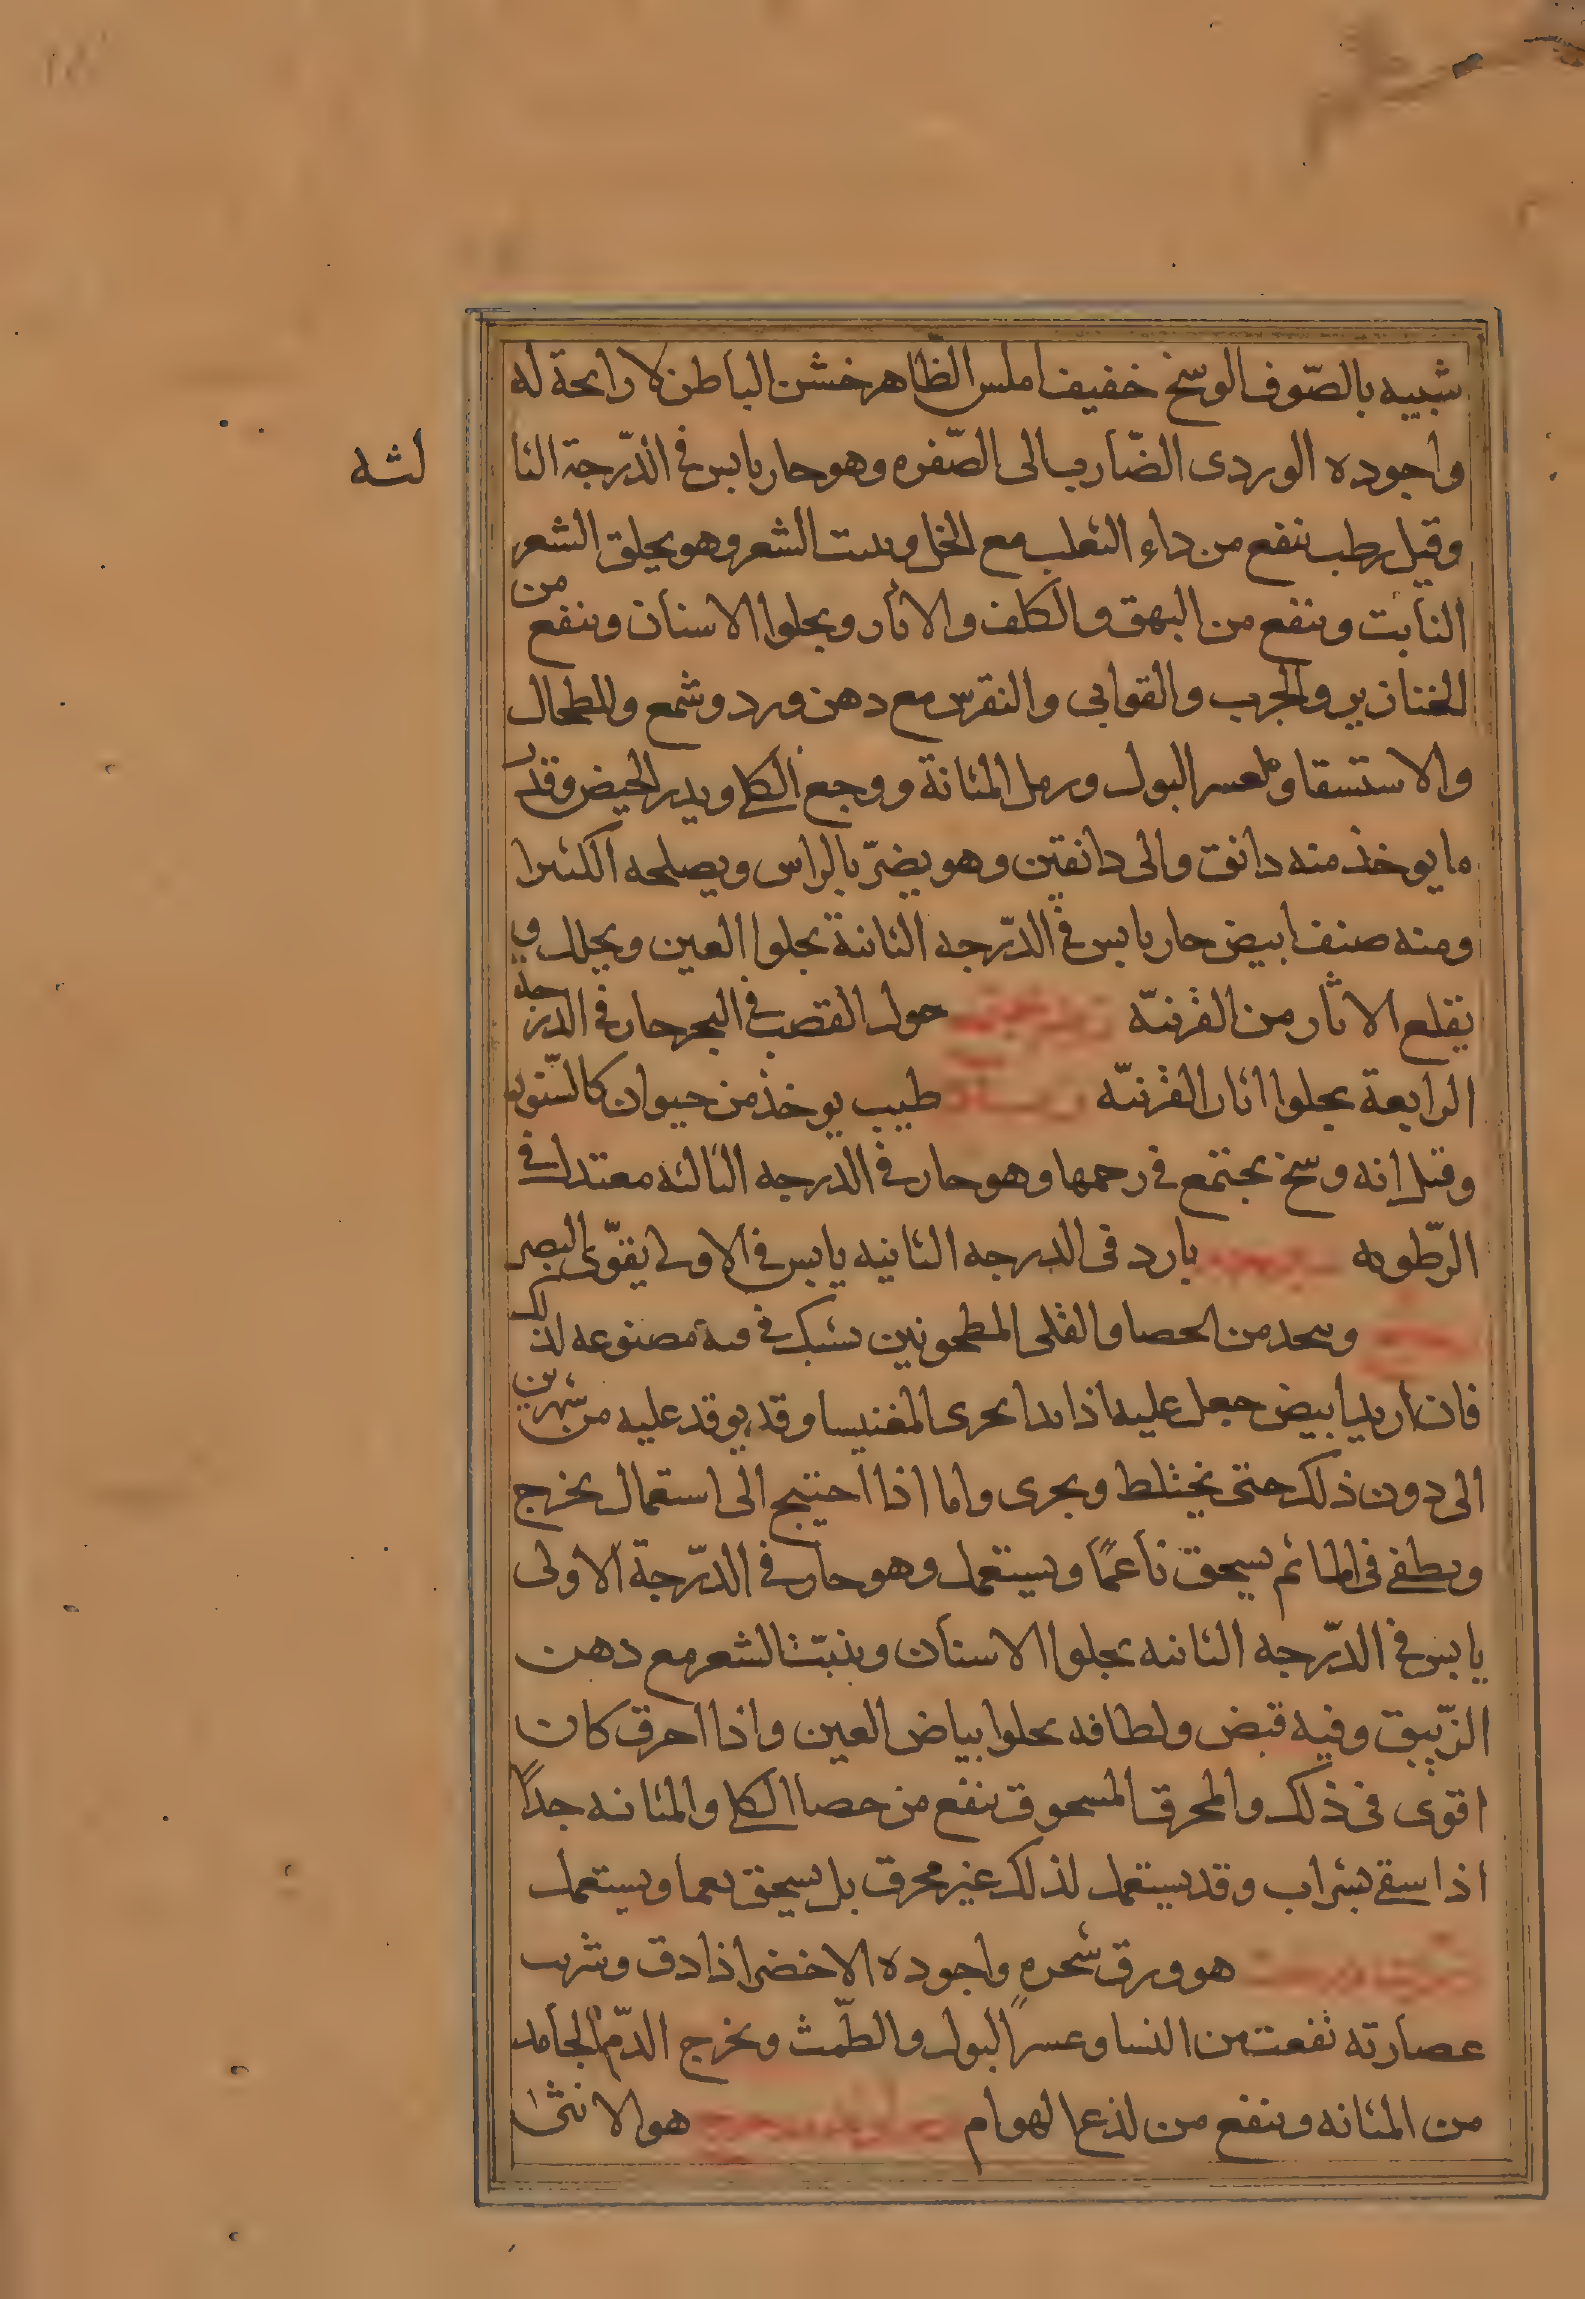 شبيه بالصّوف الوسخ خفيفا املس الظاهر خشن الباطن لا رايحة له
واجوده الوردى الضّارب الى الصّفره وهو حار يابس فى الدّرجة الثا
لثه
وقيل رطب ينفع من داء الثعلب مع الخل وينبت الشعر وهو يحلق الشعر
النابت وينفع من البهق والكلف والاثار ويجلوا الاسنان وينفع من
الخنازير والجرب والقوابى والنقرس مع دهن ورد وشمع وللطحال
والاستسقا ولعسر البول ورمل المثانة ووجع الكلا ويدر الحيض وقدر
ما يوخذ منه دانق والى دانقين وهو يضرّ بالراس ويصلحه الكثيرا
ومنه صنف ابيض حار يابس فى الدّرجه الثانية يجلوا العين ويحلل و
يقلع الاثار من القرنيّه حول القصب فى البحر حار فى الدرجة
الرابعة يجلوا اثار القرنيّه طيب يوخذ من حيوان كالسّنور
وقيل انه وسخ يجتمع فى رحمها وهو حار فى الدرجه الثالثه معتدل فى
الرّطوبه بارد فى الدرجه الثانيه يابس فى الاولى يقوّى البصر
من الحصا والقلى المطحونين يسبك فى مصنوعه لذلك
فان اريد ابيض جعل عليه اذا بدا يجرى المغنيسا وقد يوقد عليه من شهرين
الى دون ذلك حتى يختلط ويجرى واما اذا احتيج الى استعمال يخرج
ويطفى فى الما ثم يسحق ناعمًا ويستعمل وهو حار فى الدّرجة الاولى
يابس فى الدّرجه الثانيه يجلوا الاسنان وينبّت الشعر مع دهن
الزّيبق وفيه قبض ولطافه يجلوا بياض العين واذا احرق كان
اقوى فى ذلك والمحرق المسحوق ينفع من حصا الكلا والمثانه جدّا
اذا سقى بشراب وقد يستعمل لذلك غير محرق بل يسحق نعما ويستعمل
هو ورق شجره واجوده الاخضر اذا دق وشرب
عصارته نفعت من النسا وعسر البول والطّمث ويخرج الدّم الجامد
من المثانه وينفع من لذع الهوام هو الانثى